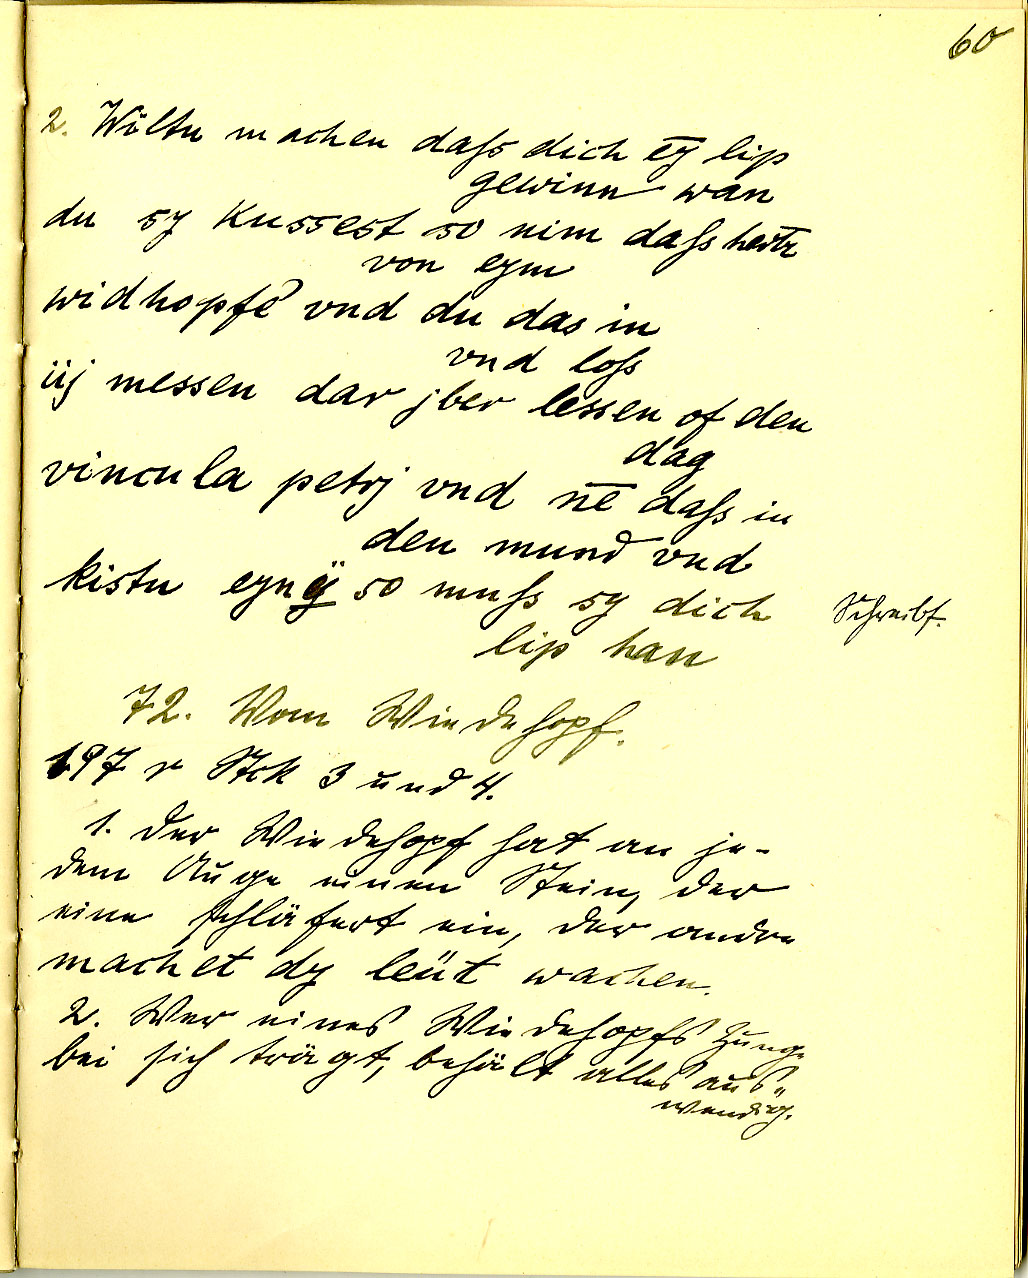 60
2. Wiltu machen dass dich ey̅ lip
gewinn wan
du sy kussest so nim dass hertz
von eym
widhopfe vnd du das in
vnd loss
iij messen dar jber lessen of den
dag
vincula petrj vnd ne̅ dass in
den mund vnd
kistu eyn so muss sy dich
Schreibf.
lip han
72. Vom Wiedehopf.
197 r Stck 3 und 4.
1. Der Wiedehopf hat an je-
dem Auge einen Stein, der
eine schläfert ein, der andre
machet dy leüt wachen.
2. Wer eines Wiedehopfs Zunge
bei sich trägt, behält alles aus-
wendig.